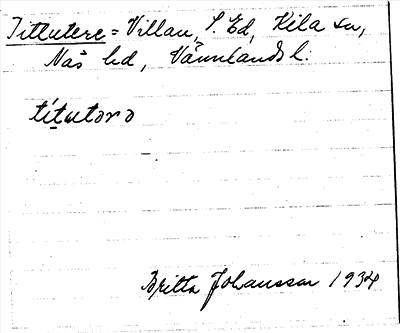 Tittutere = Villan, S. Ed, Kila sn,
Näs hd, Värmlands l.
titutərə
Britta Johansson 1934